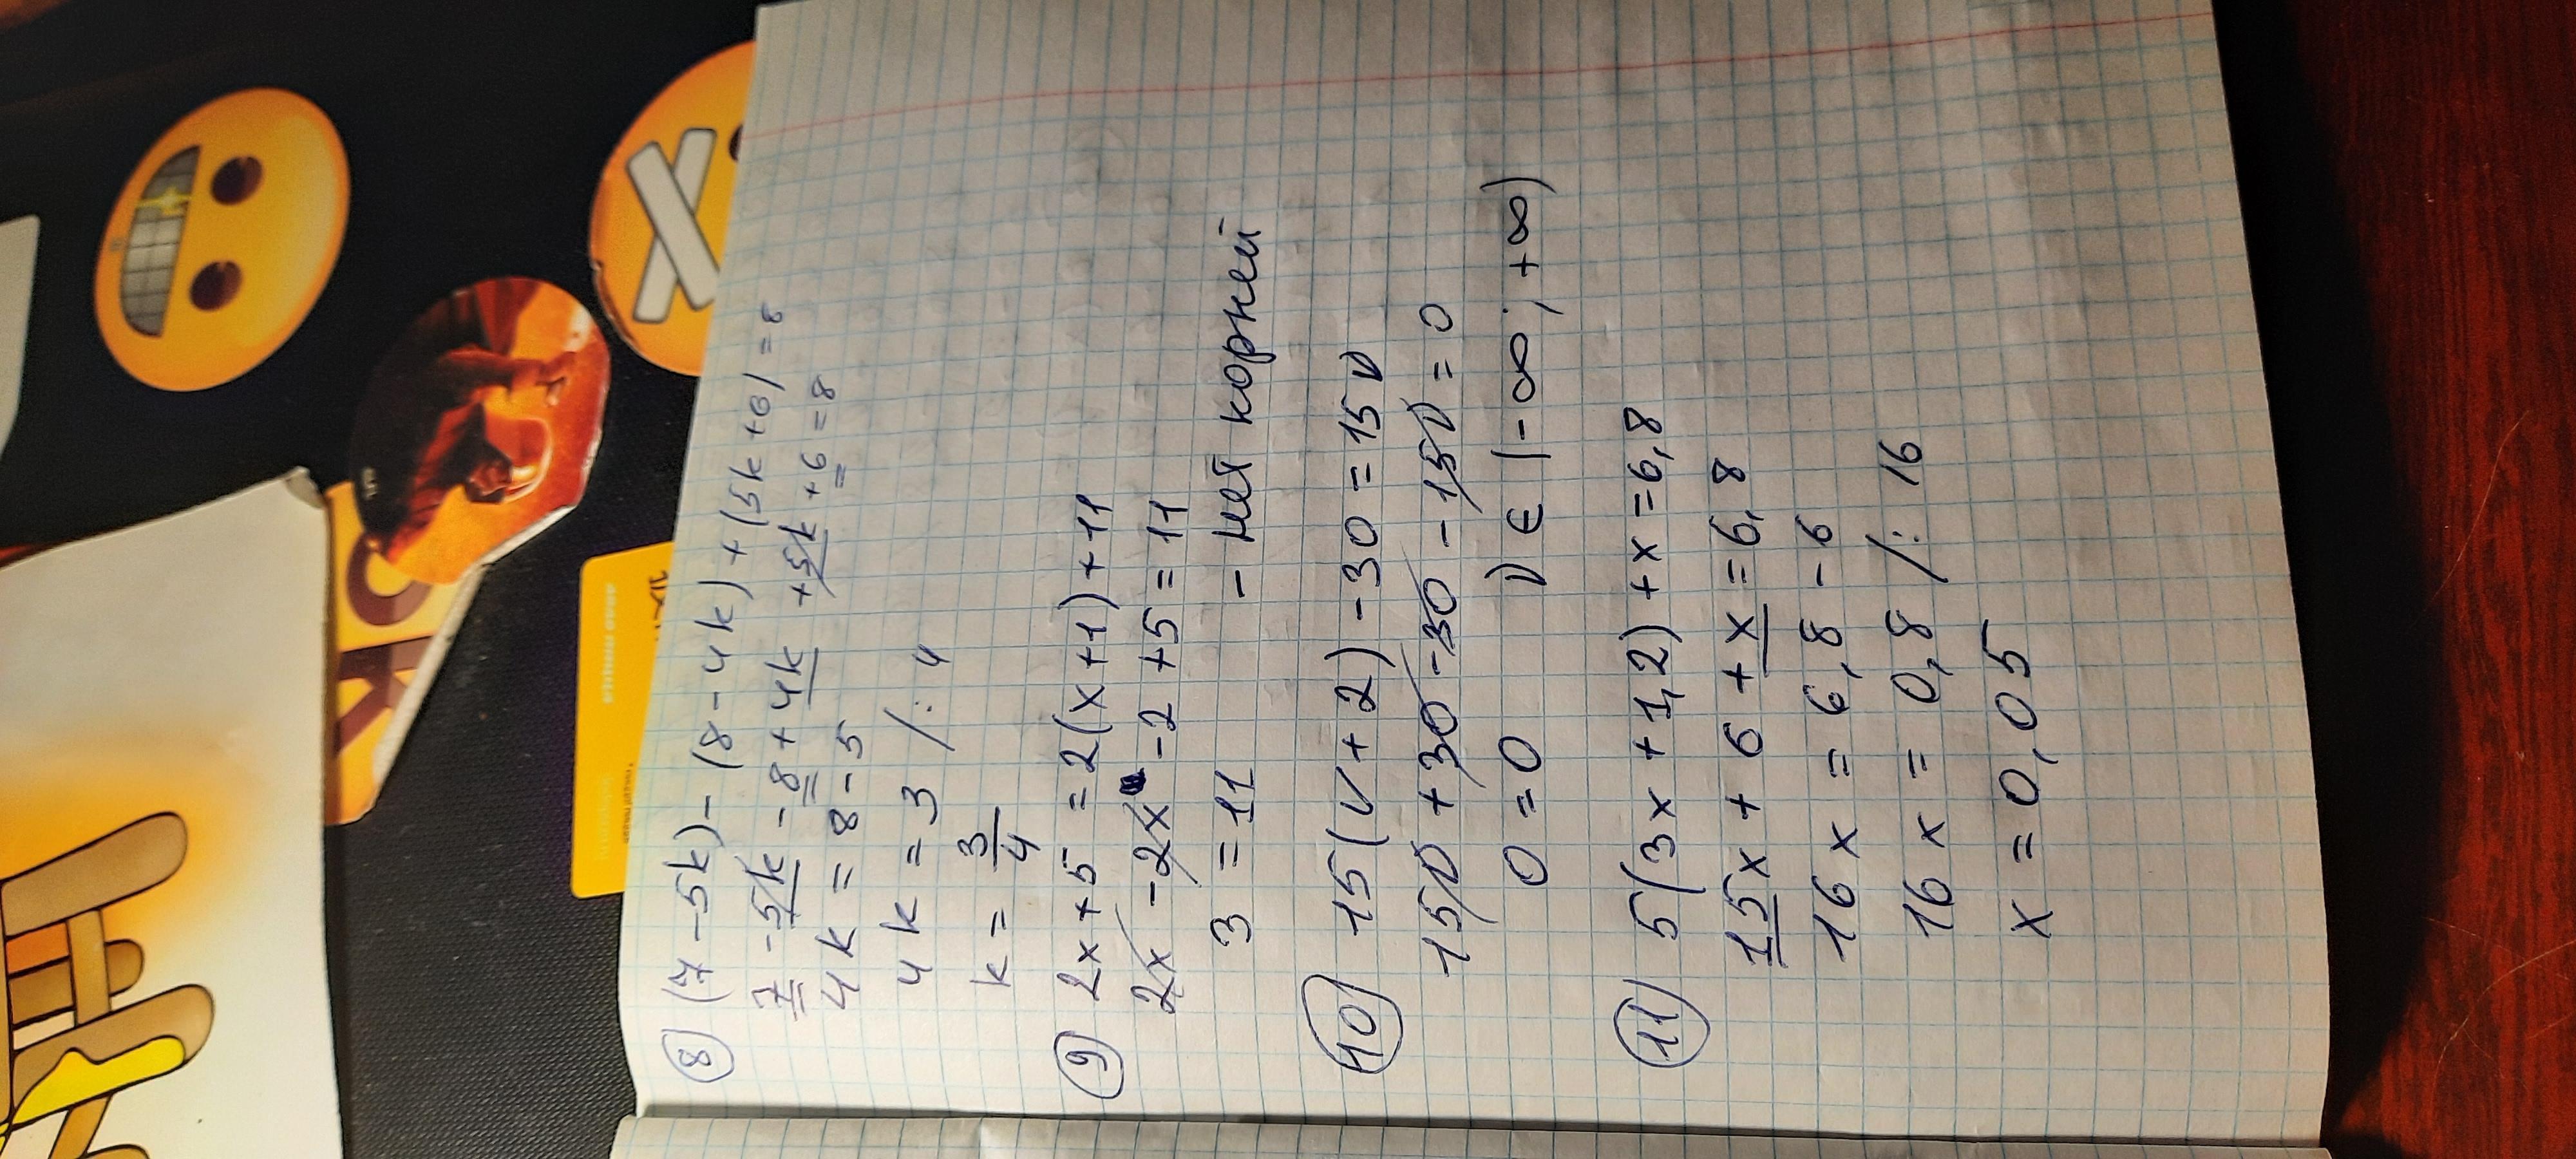 8 (7-5k)-(8-4k)+(5k+6)=8
7-5k-8+4k+5k+6=8
4k=8-5
4k=3 /:4
k=3/4
9 2x+5=2(x+1)+11
2x-2x-2+5=11
3=11 - нет корней
10 15(v+2)-30=15v
15v+30-30-15v=0
0=0 v∈(-∞;+∞)
11 5(3x+1,2)+x=6,8
15x+6+x=6,8
16x=6,8-6
16x=0,8 /:16
x=0,05